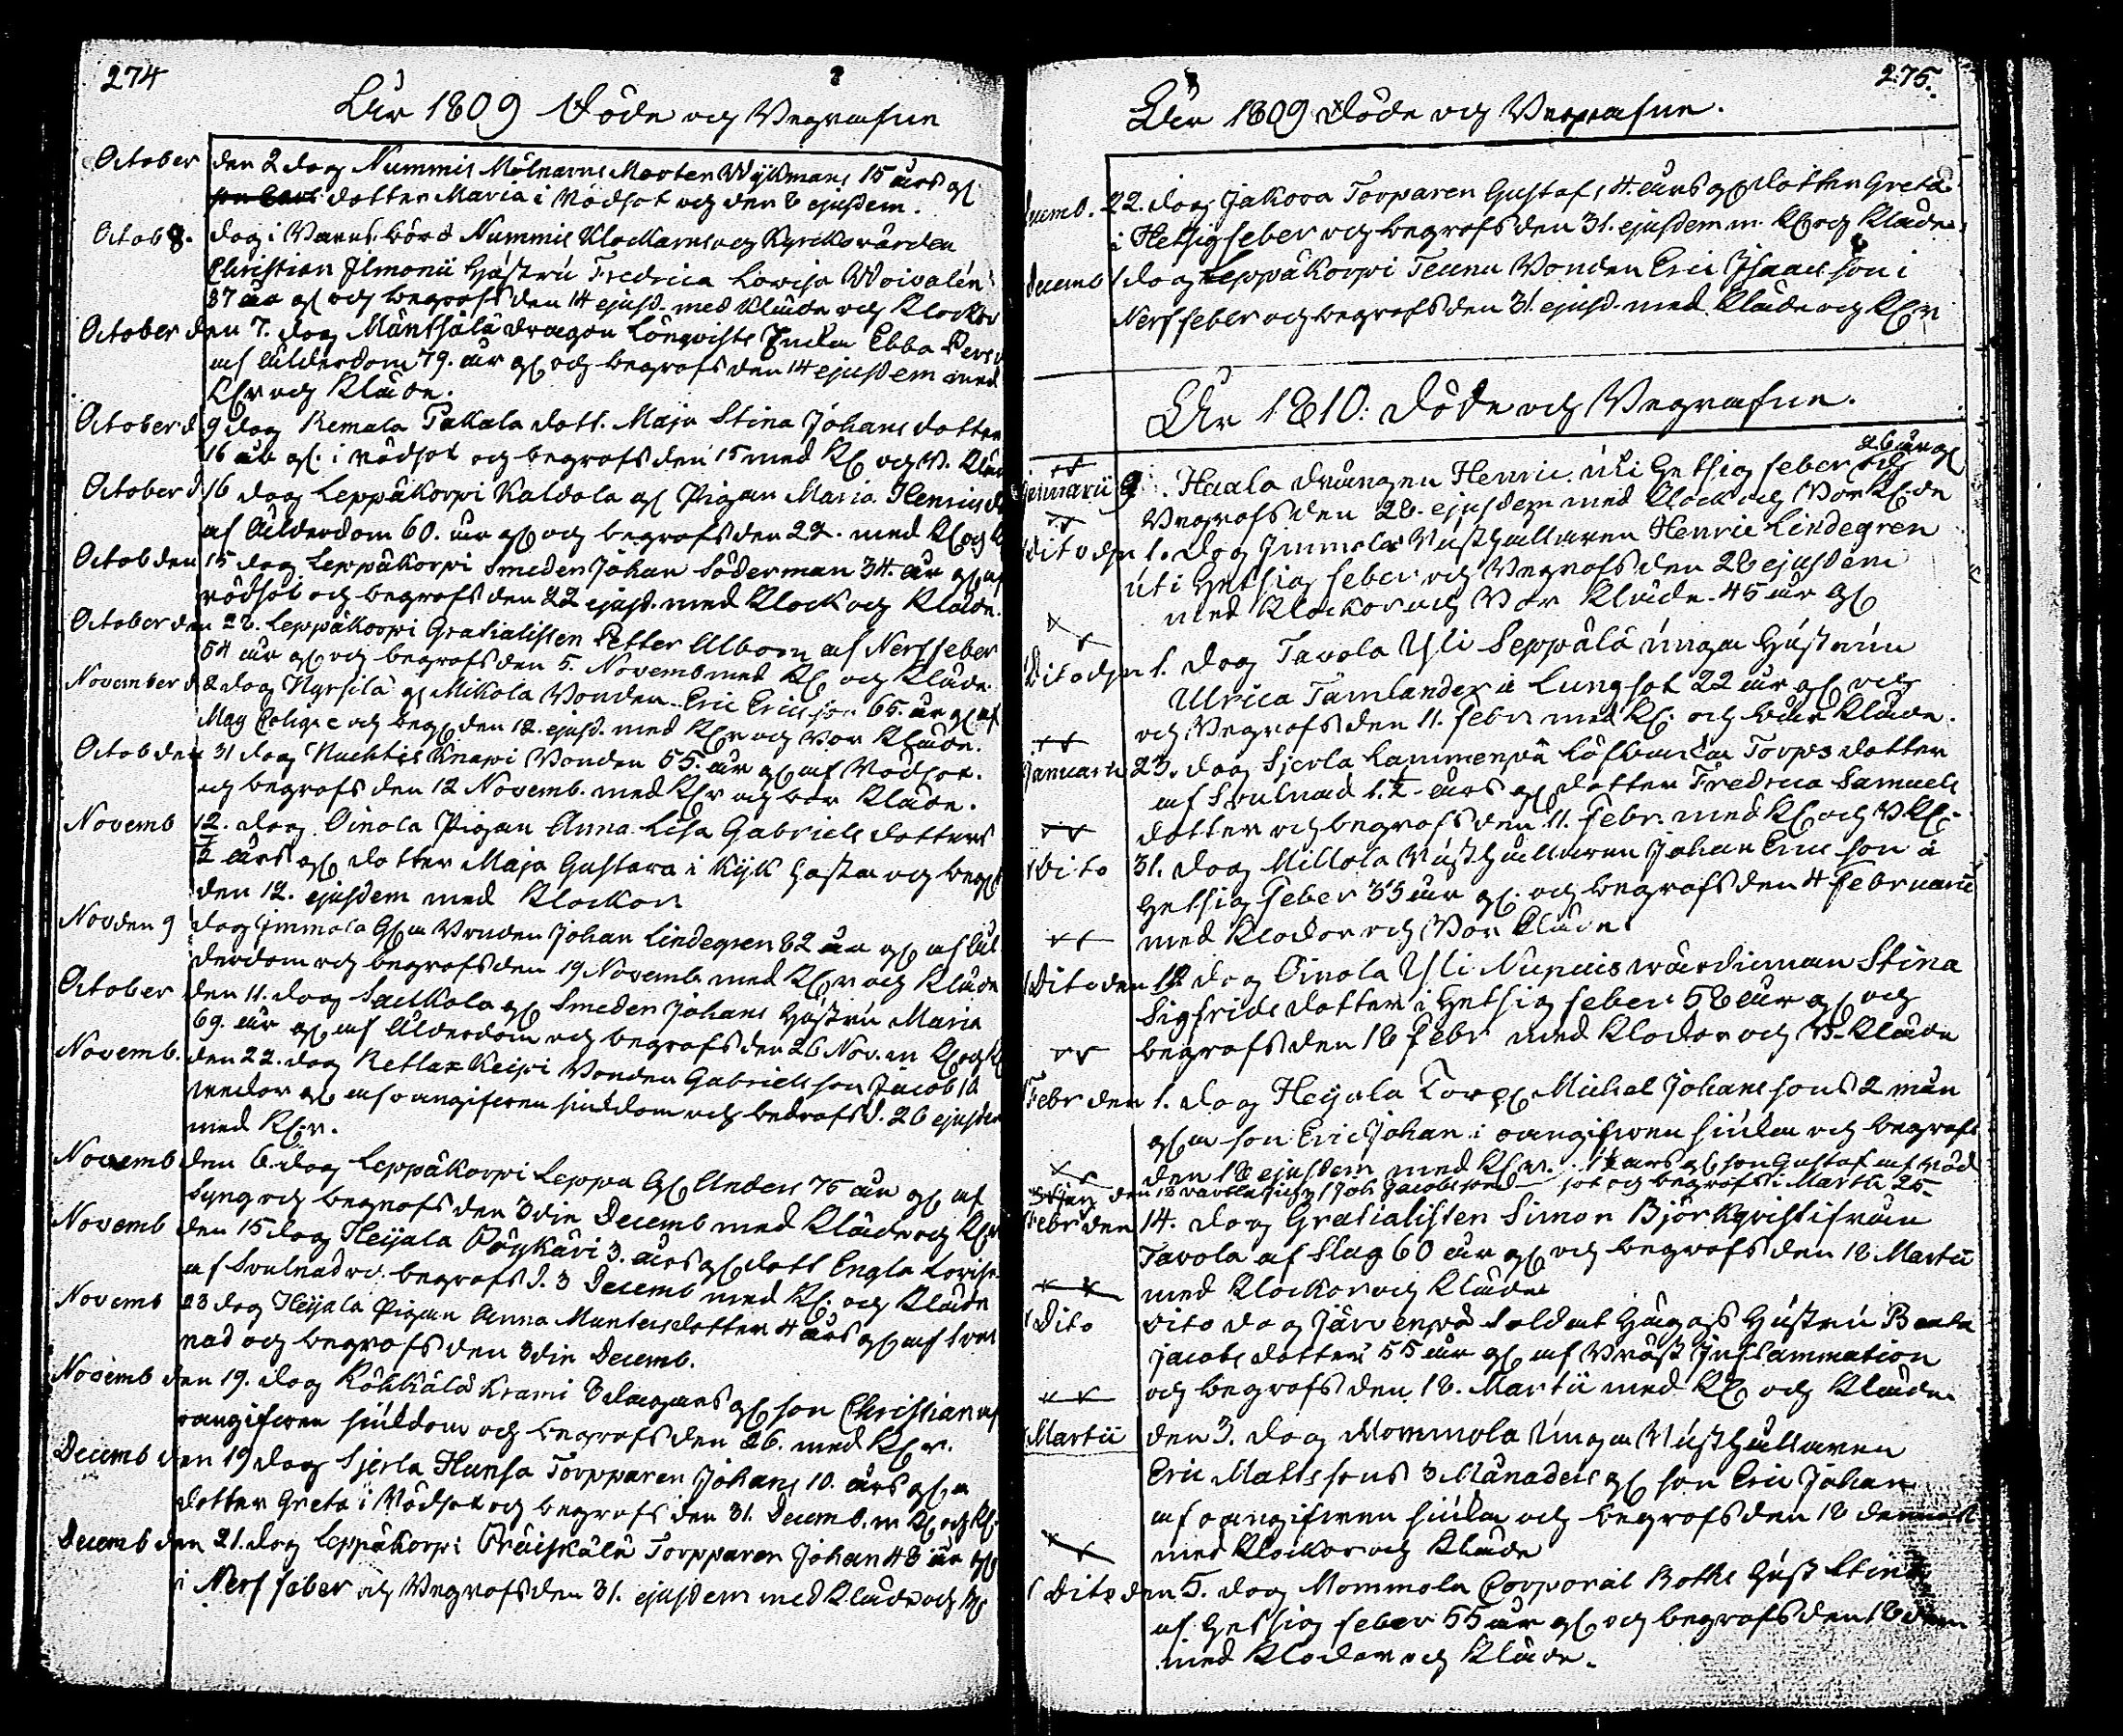 274
Åhr 1809 Döde och Begrafne
October den 2 dog Nummis Mölnarns Morten Wijkmans 15 års gl
dotter Maria i Rödsot och den 8 ejusdem.
Octob 8. dog i Barns börd Nummis Klockarns och Kyrkovärden
Christian Ilmonii Hustru Fredrica Lovisa Woivalén
37 åhr gl och begrofs den 14 ejusd. med Kläde och Klockor
October den 7. dog Mäntsälä dragon Lönqvists Enka Ebba Pers
af Ålderdom 79. år gl och begrofs den 14 ejusdem med
Klr och Kläde.
October d 9 dog Remala Pakala dott. Maja Stina Johans dotter
16 åhr gl. i rödsot och begrofs den 15 med Kl och W. Kläd
October d 16 dog Leppäkorpi Kaldola gl Pigan Maria Henrics d
af Ålderdom 60. år gl och begrofs den 22. med Kl och
Octob den 15 dog Leppäkorpi Smeden Johan Söderman 34. år gl af
rödsot och begrofs den 22 ejusd. med Klock och Kläde.
October den 28. Leppäkorpi Gratialisten Petter Alborn af Nerffeber
54 år gl och begrofs den 5. Novemb med Kl och Kläde.
November d 2 dog Hyrsilä gl Mikola Bonden Eric Ericsson 65. år gl af
Mag Colique och begr den 12. ejusd. med Klr och Bor Kläde.
Octob den 31 dog Nuchtis Knapi Bonden 55. år gl af Rödsot.
och begrofs den 12 Novemb. med Klr och bår Kläde.
Novemb 12. dog Oinola Pigan Anna Lisa Gabriels dotters
1/2 års gl dotter Maja Gustava i Kijk hosta och begr
den 12. ejusdem med Klockor
Nov den 9 dog Immola Gla Bonden Johan Lindegren 82 år gl af Ål
derdom och begrofs den 19 Novemb. med Klr och Kläde
October den 11. dog Saelkola gl Smeden Johans Hustru Maria
69. år gl af Ålderdom och begrofs den 26 Nov. m Kl och Kl
Novemb. den 22. dog Ketlax Keijri Bonden Gabriels son Jacob 16
veckor gl af oangifwen siukdom och bedrofs d. 26 ejusdem
med Klr.
Novemb den 6. dog Leppäkorpi Leppä Gl Anders 75 år gl af
Lyng och begrofs den 3die Decemb med Kläde och Klr
Novemb den 15 dog Heijala Pöykäri 3. års gl dott Engla Lovisa
af Svulnad och begrofs d. 3 Decemb med Kl. och Kläde
Novemb 23 dog Heijala Pigan Anna Muntersdotter 4 års gl af Svul
nad och begrofs den 3die Decemb.
Novemb den 19. dog Kökkälä Krami 8 dagars gl son Christian af
oangifwen siukdom och begrofs den 26. med Klr.
Decemb den 19 dog Sjerla Hunsa Torpparen Johans 10. års gla
dotter Greta i Rödsot och begrofs den 31. Decemb. m Kl och Kl.
Decemb den 21. dog Leppäkorpi Präiskälä Torpparen Johan 48 år gl
i Nerf feber och Begrofs den 31. ejusdem med Kläde och Kl
275.
Åhr 1809 Döde och Begrafne.
Decemb. 22. dog Jakova Torparen Gustafs 4. års gl dotter Greta
i Hetsig feber och begrofs den 31. ejusdem m. Kl och Kläde.
Decemb 1 dog Leppäkorpi Teeinu Bonden Eric Isaacsson i
Nerffeber och begrofs den 31. ejusd. med Kläde och Klr
Åhr 1810. Döde och Begrafne.
Januarii 9. Haala drängen Henric uti Hetsig feber 26 år gl
Begrofs den 28. ejusdem med Klock och Bor Kl.de
Dito den 1. dog Immola Bushållaren Henric Lindegren
uti Hetsig feber och Begrofs den 28 ejusdem
med Klockor och Bor Kläde. 45 år gl
Dito den 1. dog Tavola Yli Seppälä unga Hustrun
Ulrica Tamlander i Lungsot 22 år gl och
och Begrofs den 11. febr med Kl. och bår Kläde.
Januarii 23. dog Sjerla Lammenpä Torps dotter
af Svulnad 1.1/2 års gl dotter Fredrica Samuels
dotter och begrofs den 11. Febr. med Kl och B Kl.
Dito 31. dog Millola Bushållaren Johan Ericsson i
Hetsig feber 33 år gl. och begrofs den 4 Februarii
med Klockor och Bor Kläde
Dito den 12 dog Oinola Yli Nupuis wärdinnan Stina
Sigfrids dotter i Hetsig feber 58 år gl och
begrofs den 18 febr med Klockor och B. Kläde
Febr den 1. dog Heijala Torpl Michel Johanssons 2 mån
gla son Eric Johan i oangifwen siuka och begrofs
den 18 ejusdem med Klr.
1 1/2 års gl son Gustaf af Röd
sot och begrofs i Martii 25.
Febr den 14. dog Gratialisten Simon Björkqvist ifrån
Tavola af Slag 60 år gl och begrofs den 18 Martii
med Klockor och Kläde
Dito dito dog Järvenpä Soldat Hågas Hustru Beata
Jacobs dotter 55 år gl af Bröst Inflammation
och begrofs den 18. Martii med Kl och Kläde
Martii den 3. dog Mommola Unga Bushållaren
Eric Matssons 3 Månaders gl son Eric Johan
af oangifwen siuka och begrofs den 18 dennes
med Klockor och Kläde
Dito den 5. dog Mommola Corporal Boths Hust Stina
af Hetsig feber 55 år gl och begrofs den 18 dem
med Klockor och Kläde.